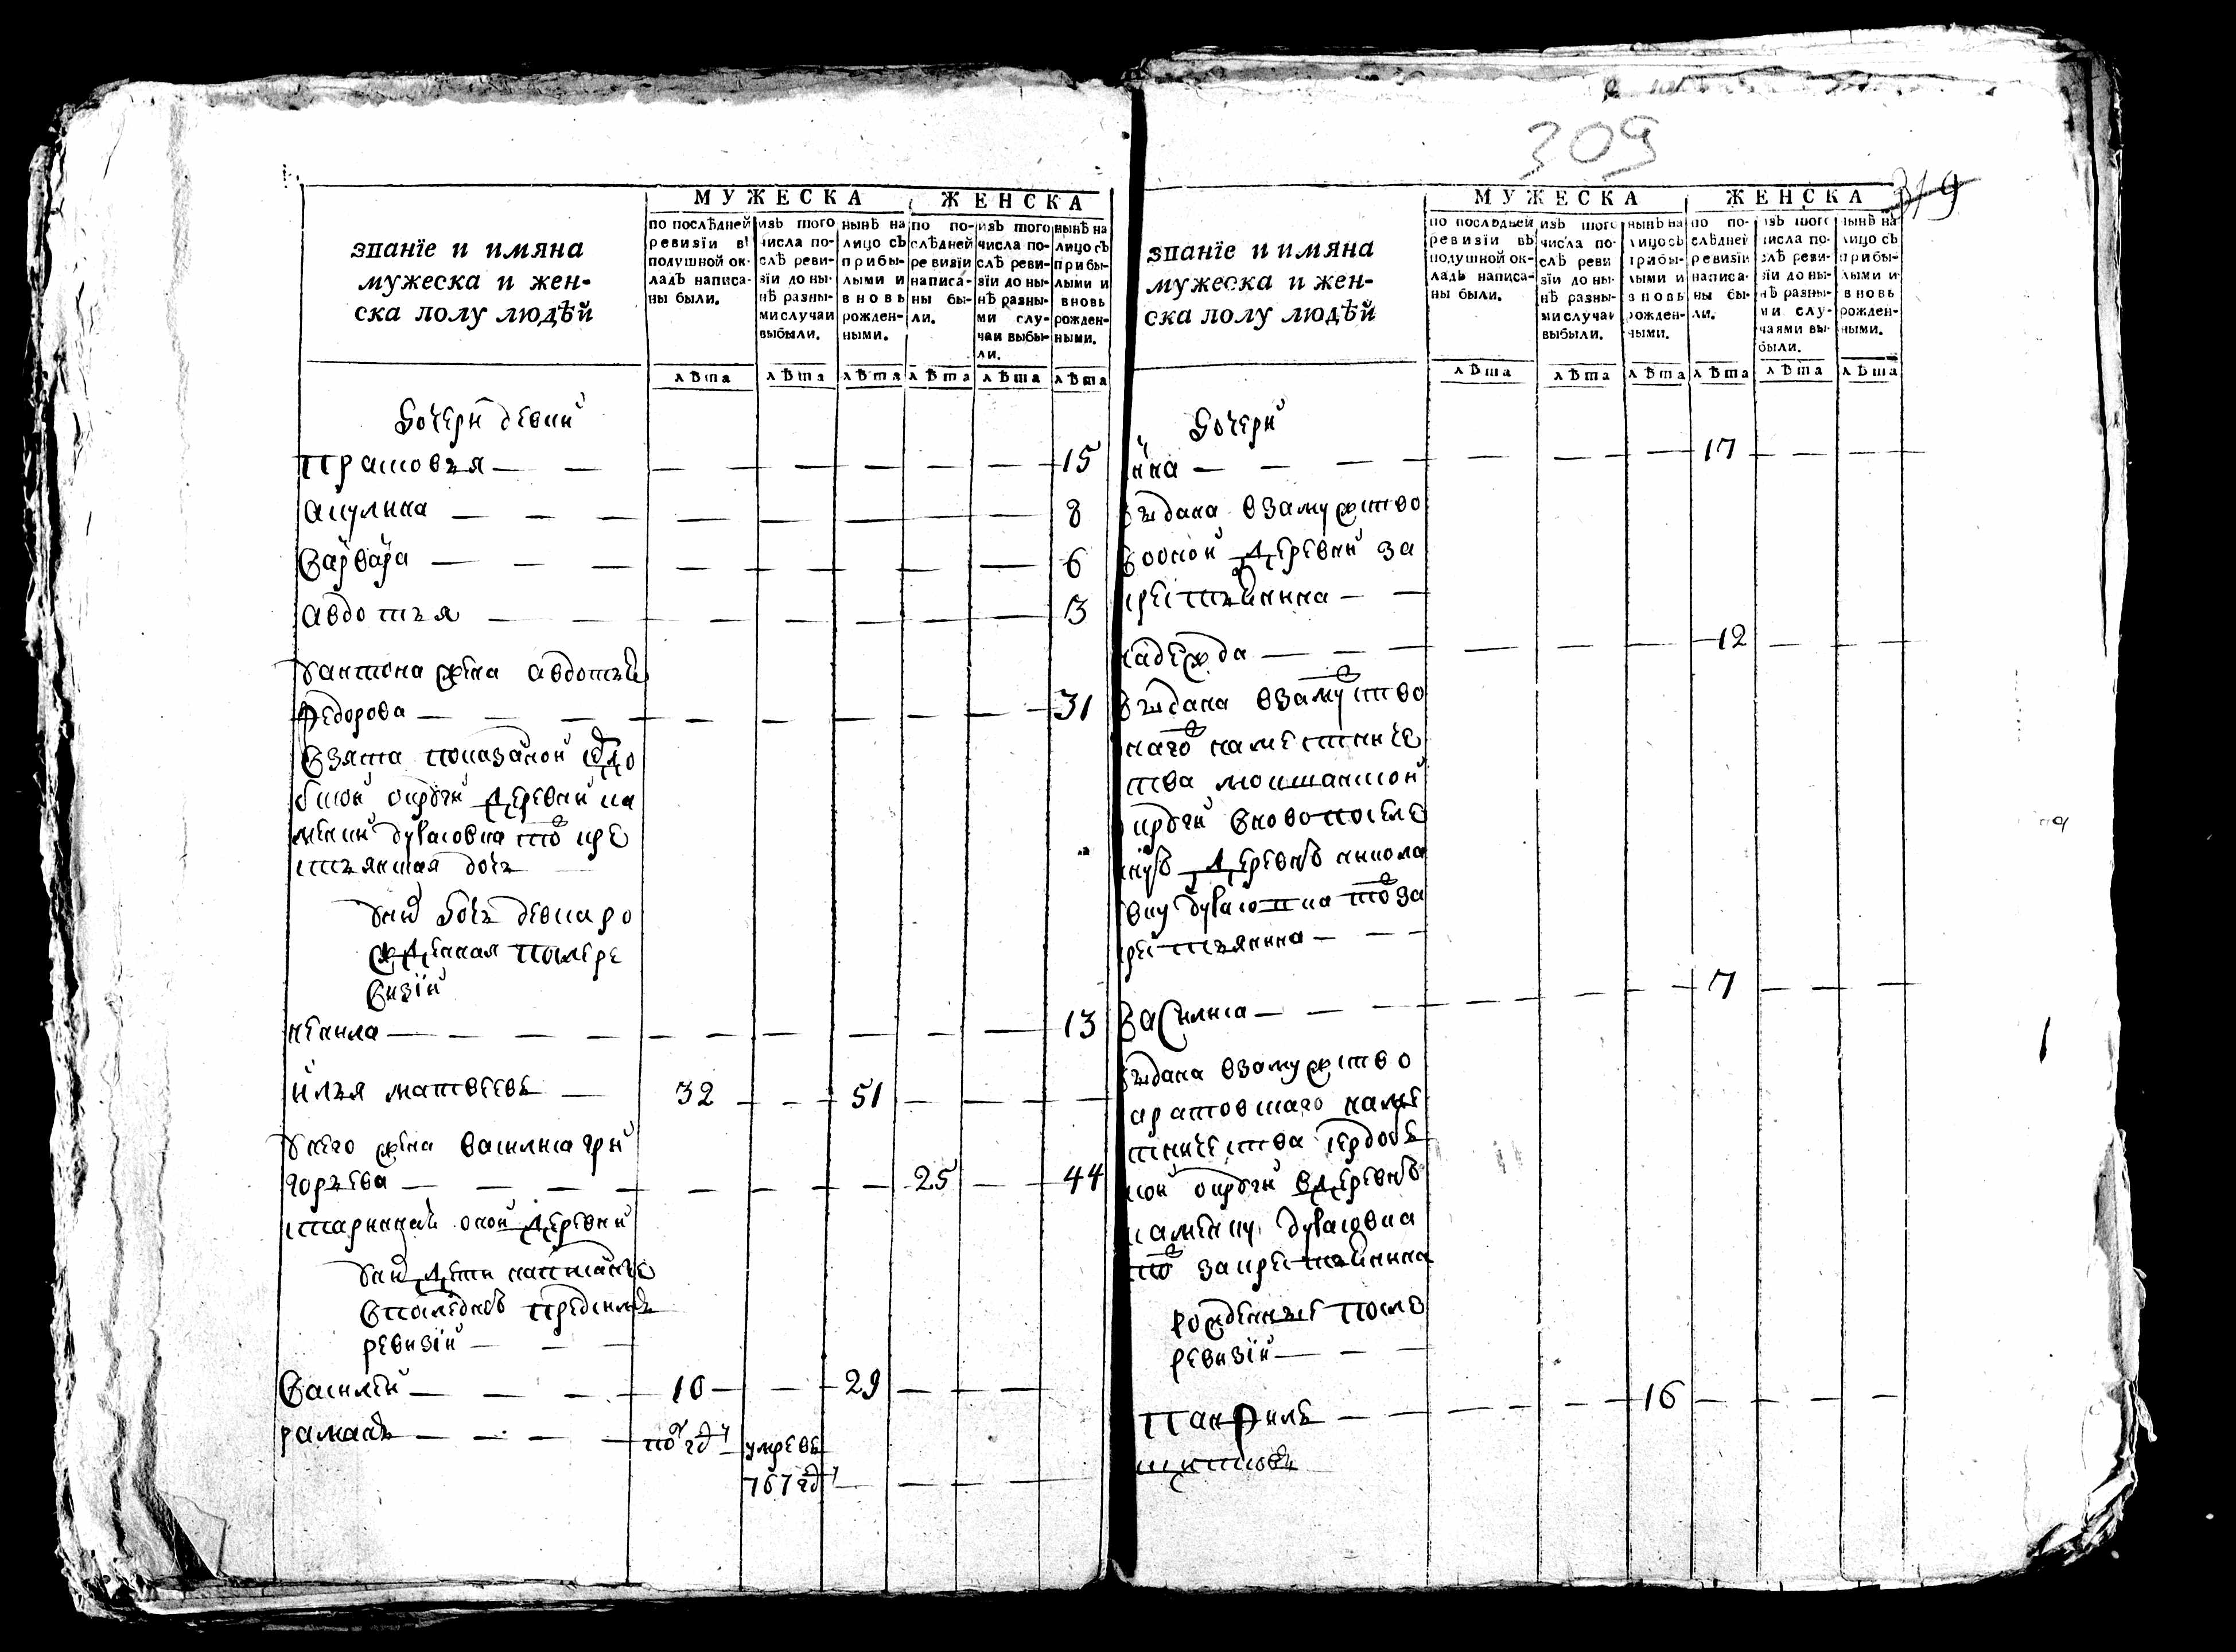 званїе и имяна
мужеска и жен-
ска полу людѣй
МУЖЕСКА
ЖЕНСКА
по послѣдней
ревизїи вЪ
подушной ок-
ладЪ написа-
ны были.
изЪ того
числа по-
слѣ реви-
зїи до ны-
нѣ разны-
ми случаи
выбыли.
нынѣ на
лицо сЪ
прибы-
лыми и
вновь
рожден-
ными.
по по-
слѣдней
ревизїи
написа-
ны бы-
ли.
изЪ того
числа по-
слѣ реви-
зїи до ны-
нѣ разны-
ми слу-
чаи выбы-
ли.
нынѣ на
лицо сЪ
прибы-
лыми и
вновь
рожден-
ными.
лѣта лѣта лѣта лѣта лѣта лѣта
дочери девки
прасковья 15
акулина 8
варвара 6
авдотья 3
у антона жена авдотья
федорова 31
взята показаной
округи деревни ка
менки то кре
стьянская дочь
у них дочь девка ро
жденная после ре
визїи
ненила 13
илья матвеевъ 32 51
у него жена василиса гри
горьева 25 44
старинная оной деревни
у них дети написаные
в последней пред сим
ревизїи
василей 10 29
раманъ по год умре въ
767 год
309
319
званїе и имяна
мужеска и жен-
ска полу людѣй
МУЖЕСКА
ЖЕНСКА
по послѣдней
ревизїи вЪ
подушной ок-
ладЪ написа-
ны были.
изЪ того
числа по-
слѣ реви
зїи до ны-
нѣ разны-
ми случаи
выбыли.
нынѣ на
лицо сЪ
прибы-
лыми и
вновь
рожден-
ными.
по по-
слѣдней
ревизїи
написа-
ны бы-
ли.
изЪ того
числа по-
слѣ реви-
зїи до ны-
нѣ разны-
ми слу-
чаями вы-
были.
нынѣ на
лицо сЪ
прибы-
лыми и
вновь
рожден-
ными.
лѣта лѣта лѣта лѣта лѣта лѣта
дочери
17
выдана в замужство
в оной деревни за
крестьянина
надежда 12
выдана в замуство
наместниче
ства мокшанской
округи вновопоселе
деревню никола
то за
крестьянина
василиса 7
выдана в замужство
саратовскаго наме
стничества сердоб
ской округи в деревню
каменку
то за крестьянина
рожденные после
ревизїи
панфилъ 16